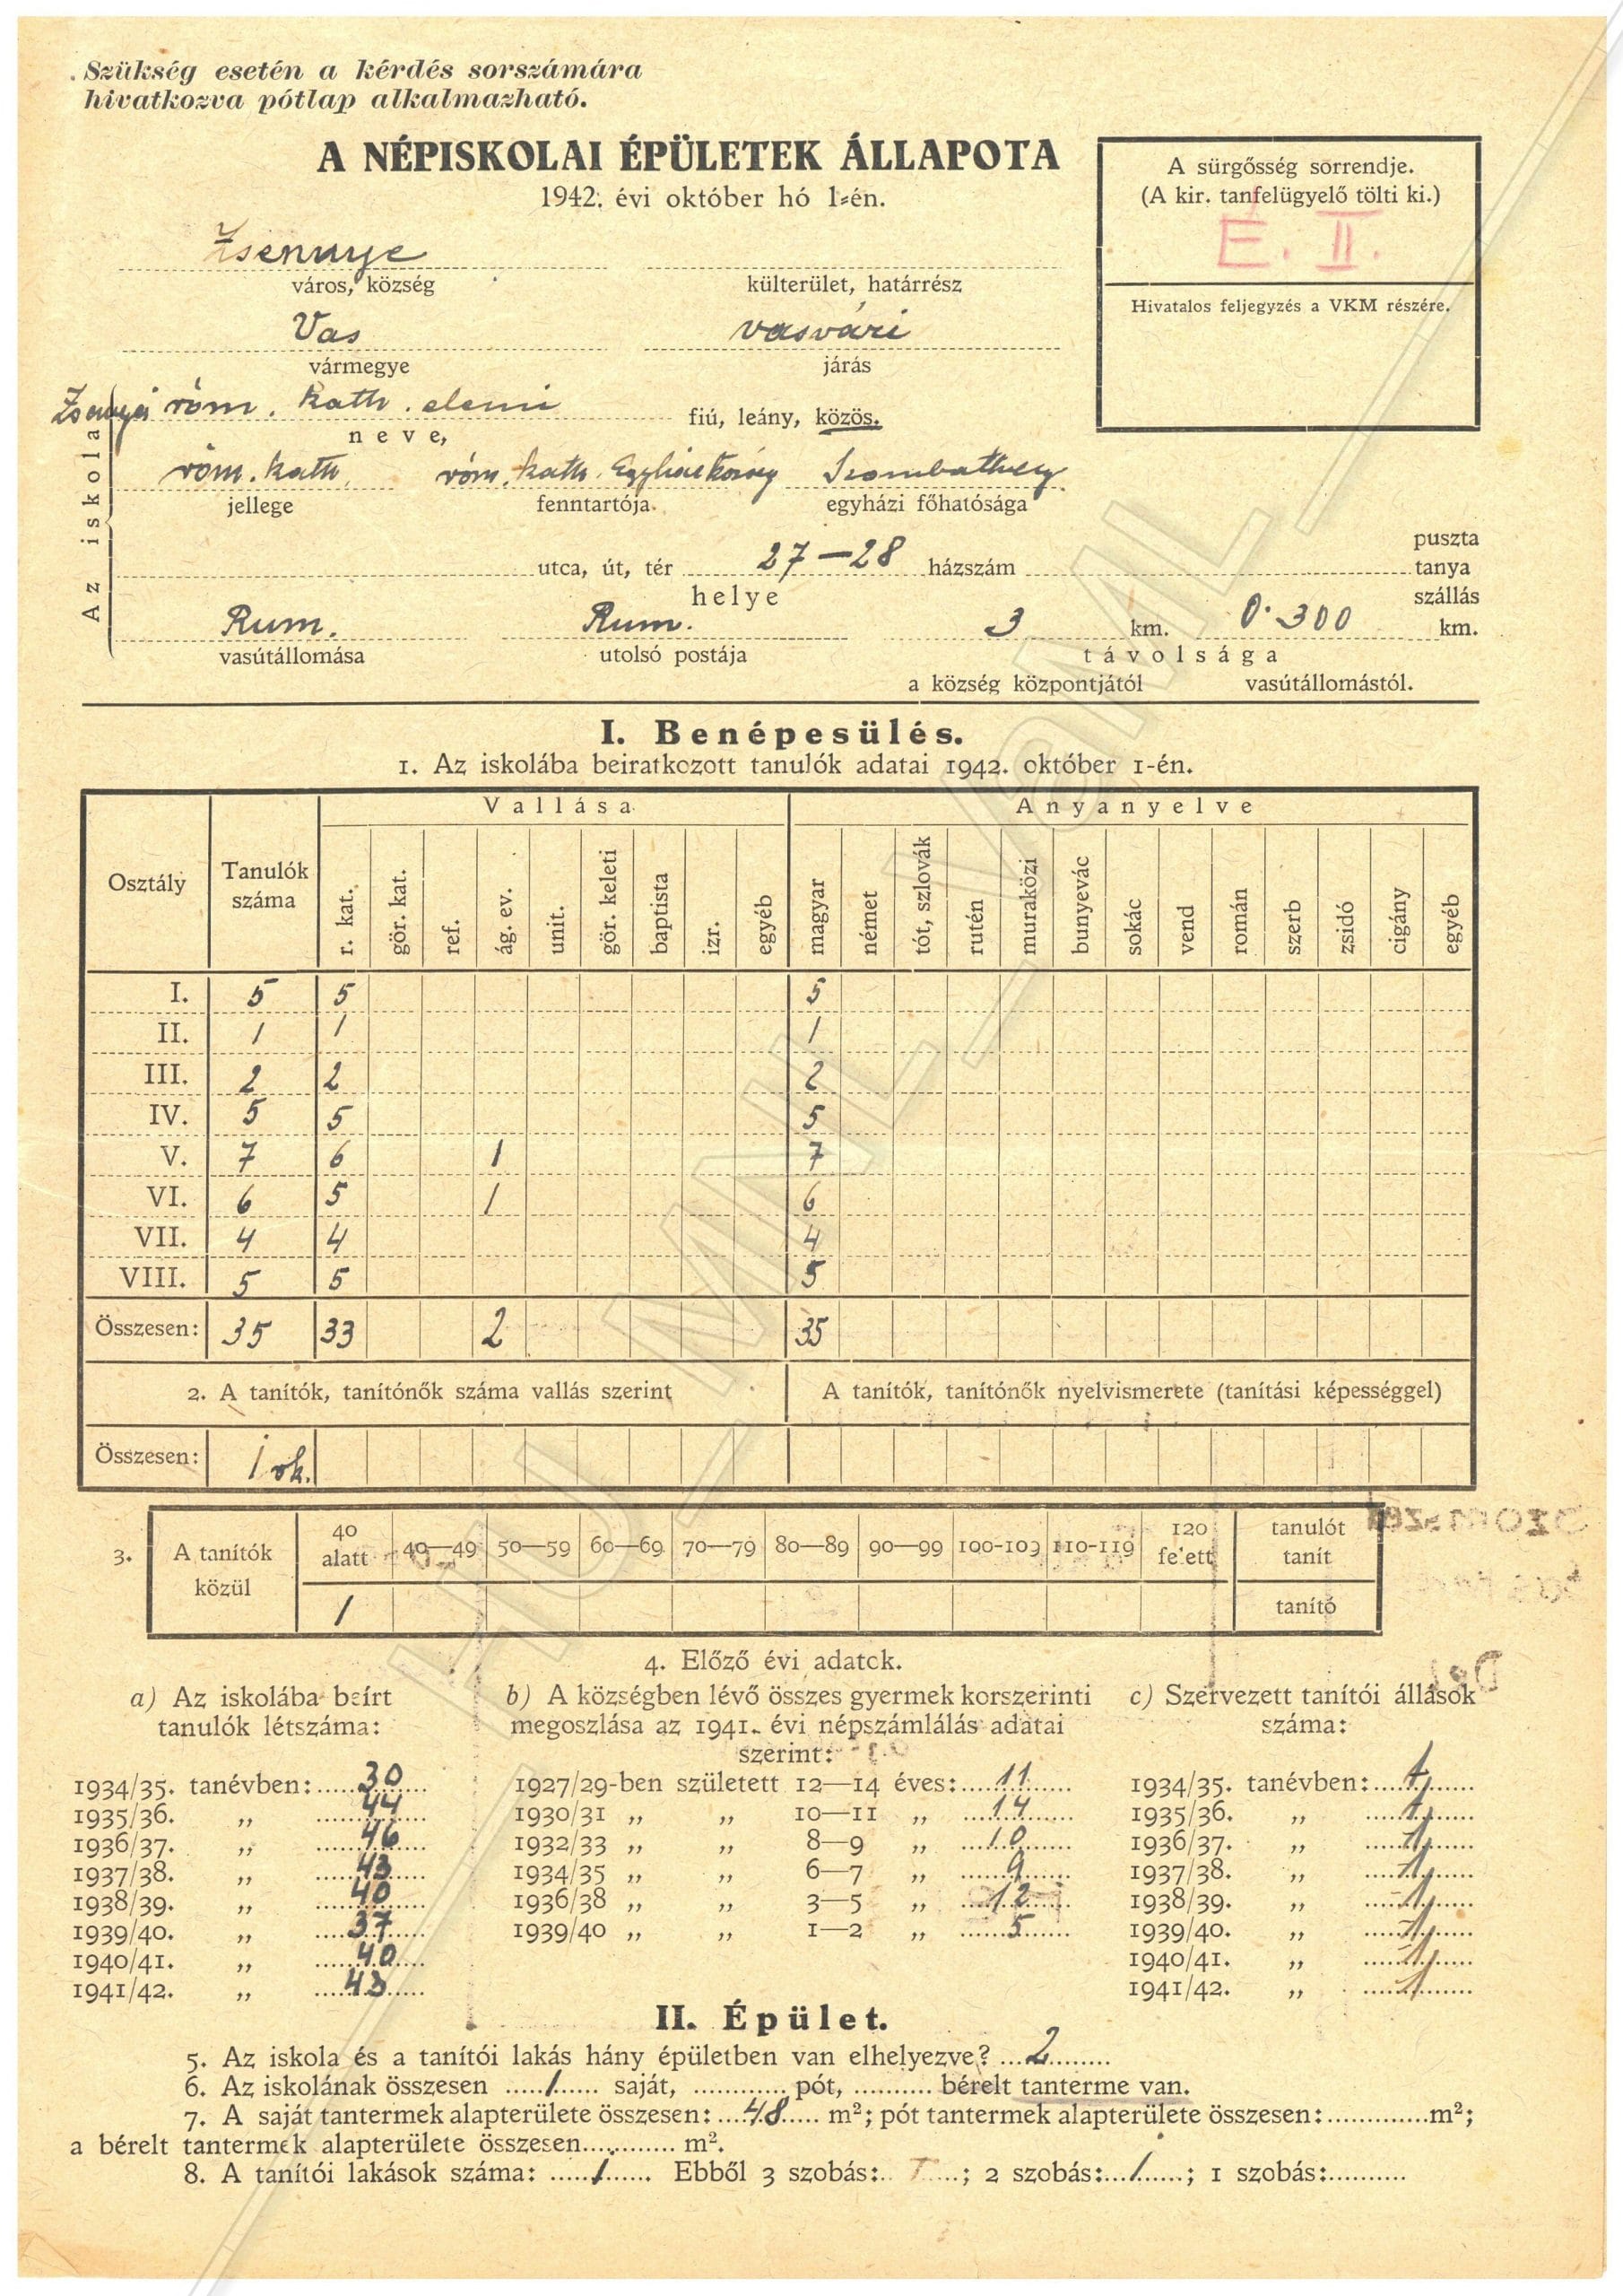 Szükség esetén a kérdés sorszámára
hivatkozva pótlap alkalmazható.
A NÉPISKOLAI ÉPÜLETEK ÁLLAPOTA
1942. évi október hó 1-én.
A sürgősség sorrendje.
(A kir. tanfelügyelő tölti ki.)
É. II.
Hivatalos feljegyzés a VKM részére.
Zsennye
város, község külterület, határrész
Vas vasvári
vármegye járás
Az iskola
Zsennyei róm. kath. elemi fiú, leány, közös.
neve,
róm. kath. róm. kath. Egyházközség Szombathely
jellege fenntartója egyházi főhatósága
utca, út, tér 27–28 házszám puszta
tanya
szállás
helye
Rum. Rum. 3 km. 0.300 km.
vasútállomása utolsó postája távolsága
a község központjától vasútállomástól.
I. Benépesülés.
1. Az iskolába beiratkozott tanulók adatai 1942. október 1-én.
Vallása Anyanyelve
Osztály Tanulók száma r. kat. gör. kat. ref. ág. ev. unit. gör. keleti baptista izr. egyéb magyar német tót, szlovák rutén muraközi bunyevác sokác vend román szerb zsidó cigány egyéb
I. 5 5 5
II. 1 1 1
III. 2 2 2
IV. 5 5 5
V. 7 6 1 7
VI. 6 5 1 6
VII. 4 4 4
VIII. 5 5 5
Összesen: 35 33 2 35
2. A tanítók, tanítónők száma vallás szerint A tanítók, tanítónők nyelvismerete (tanítási képességgel)
Összesen: 1 rk.
3. A tanítók közül 40 alatt 40—49 50—59 60—69 70—79 80—89 90—99 100-109 110-119 120 felett tanulót tanít
1 tanító
4. Előző évi adatok.
a) Az iskolába beírt b) A községben lévő összes gyermek korszerinti c) Szervezett tanítói állások
tanulók létszáma: megoszlása az 1941. évi népszámlálás adatai száma:
szerint:
1934/35. tanévben: 30 1927/29-ben született 12—14 éves: 11 1934/35. tanévben: 1
1935/36. „ 44 1930/31 „ „ 10—11 „ 14 1935/36. „ 1
1936/37. „ 46 1932/33 „ „ 8—9 „ 10 1936/37. „ 1
1937/38. „ 43 1934/35 „ „ 6—7 „ 9 1937/38. „ 1
1938/39. „ 40 1936/38 „ „ 3—5 „ 12 1938/39. „ 1
1939/40. „ 37 1939/40 „ „ 1—2 „ 5 1939/40. „ 1
1940/41. „ 40 1940/41. „ 1
1941/42. „ 43 1941/42. „ 1
II. Épület.
5. Az iskola és a tanítói lakás hány épületben van elhelyezve? 2
6. Az iskolának összesen 1 saját, pót, bérelt tanterme van.
7. A saját tantermek alapterülete összesen: 48 m²; pót tantermek alapterülete összesen: m²;
a bérelt tantermek alapterülete összesen m².
8. A tanítói lakások száma: 1 Ebből 3 szobás: ; 2 szobás: 1 ; 1 szobás:
HU_MNL_VaML